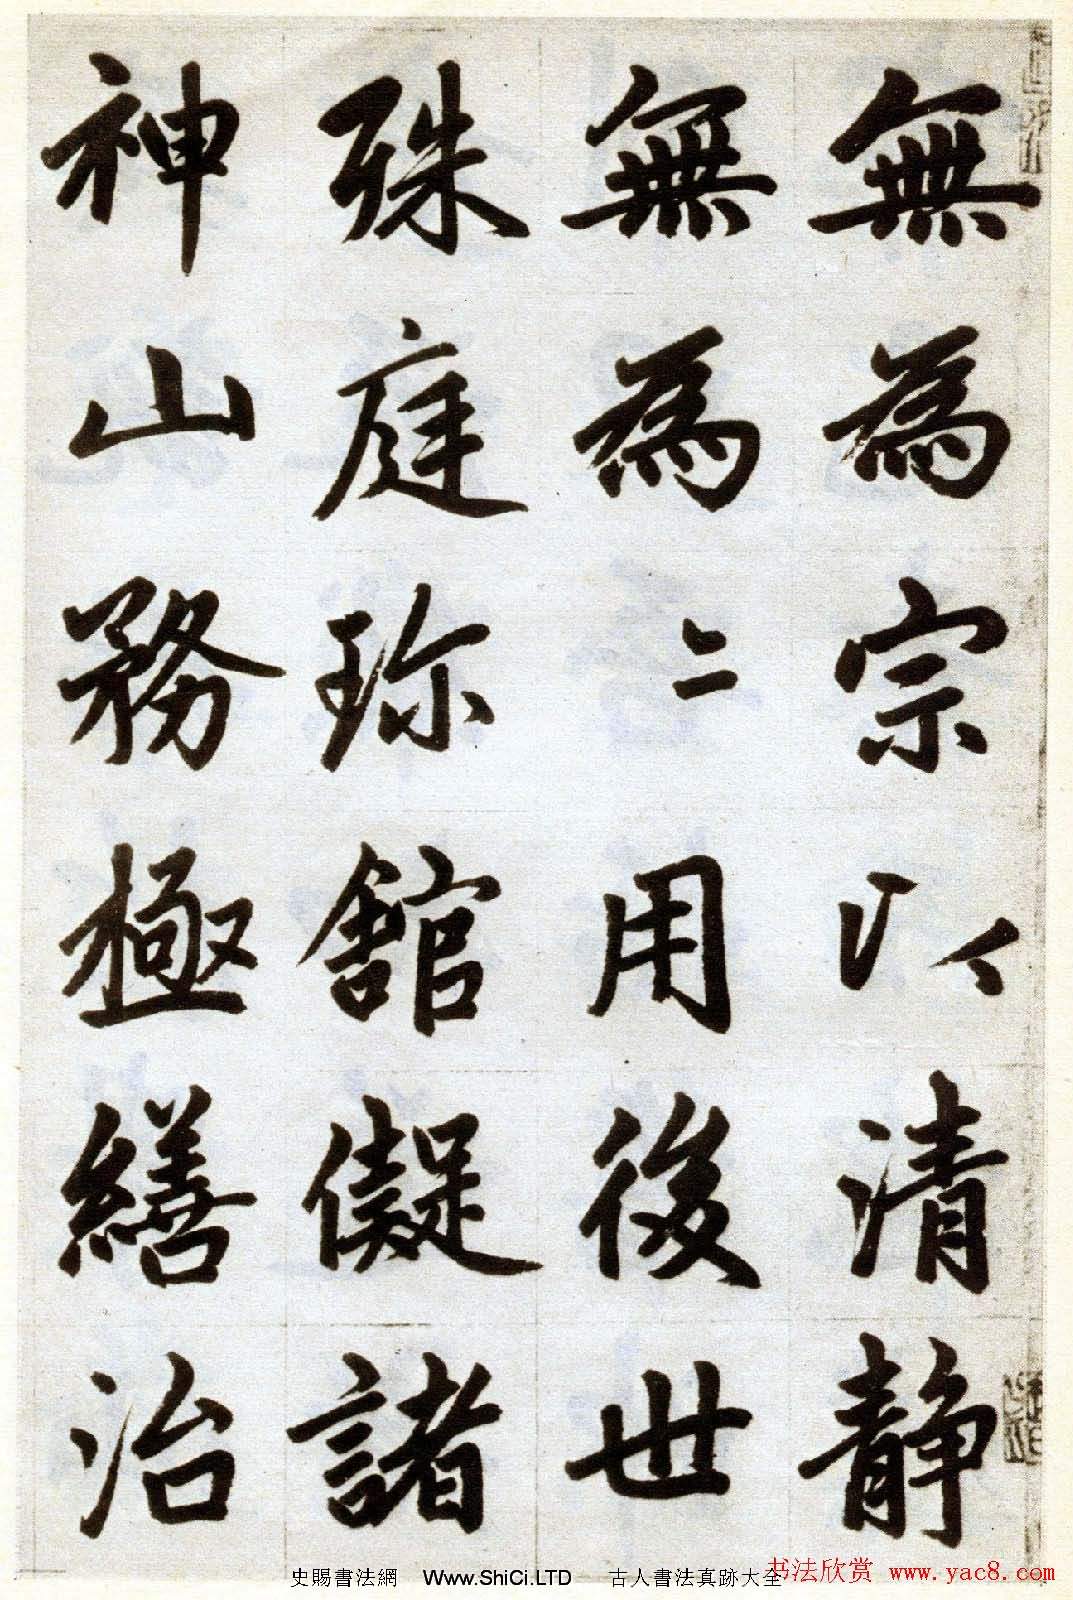 無為宗以清静
無為二用後世
殊庭珎舘儗諸
神山務極繕治
史賜書法網 Www.ShiCi.LTD 古人書法真跡大全
书法欣赏 www.yac8.com